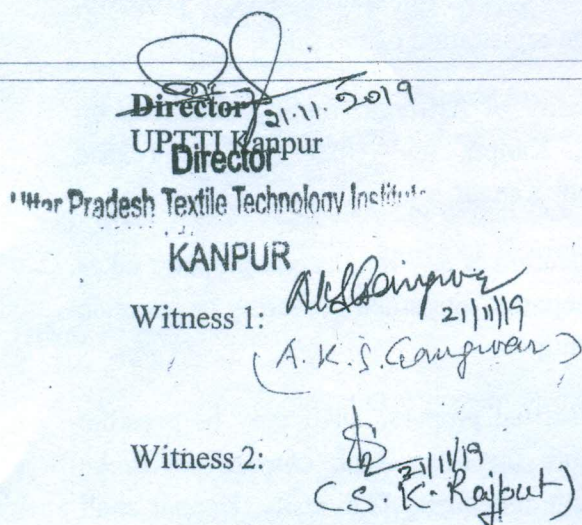 Director
21.11.2019
UPTTI Kanpur
Director
Uttar Pradesh Textile Technology Institute
KANPUR
Witness 1:
21/11/19
(A.K.S. Gangwar)
Witness 2:
21/11/19
(S.K. Rajput)